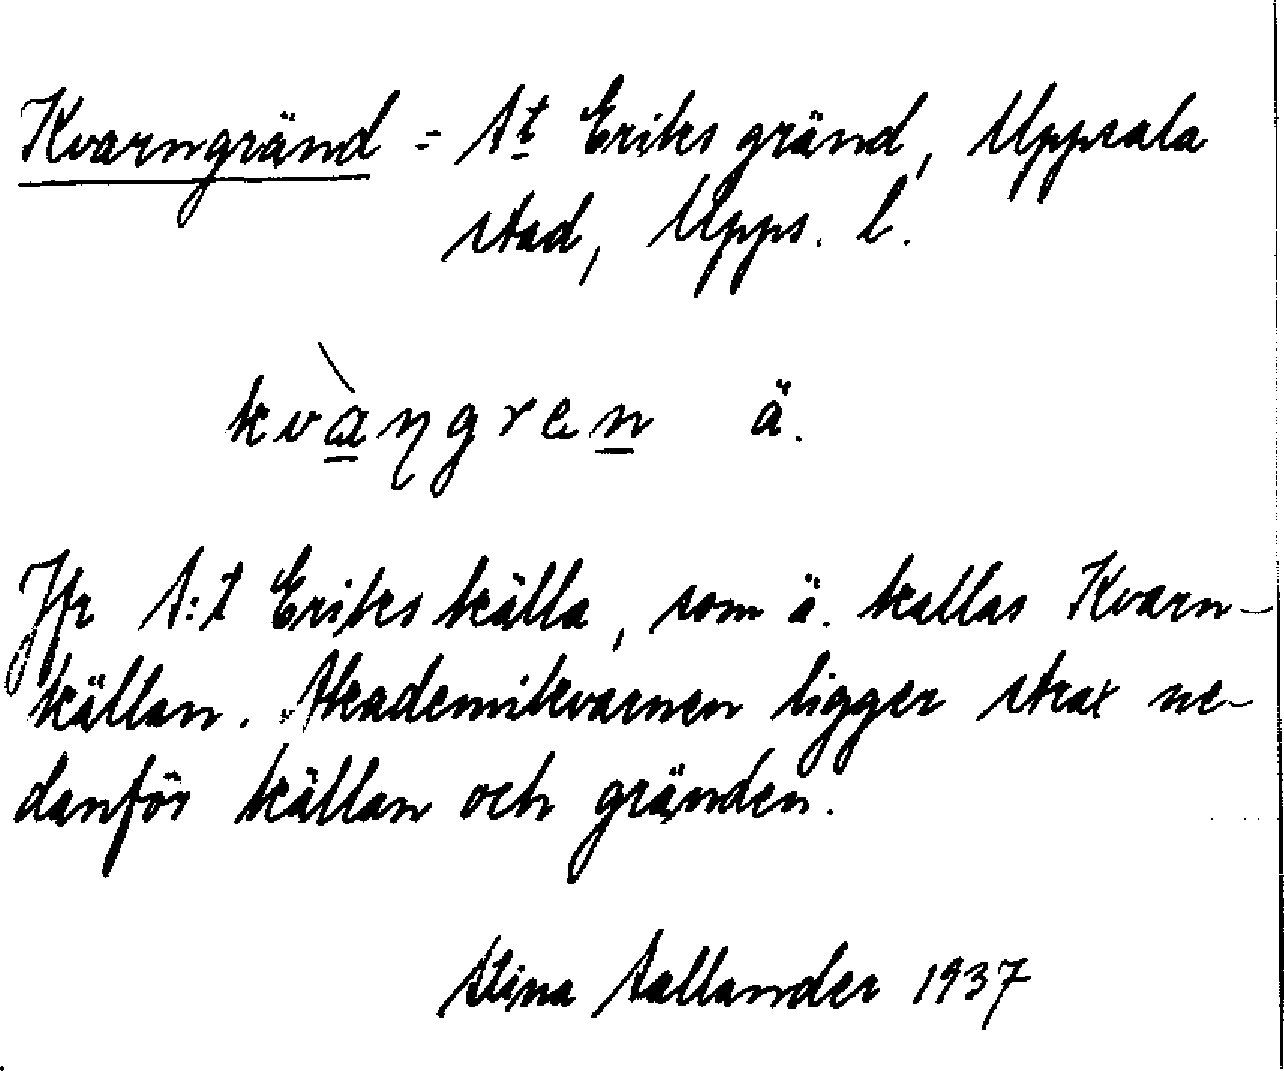 Kvarngränd = St Eriks gränd, Uppsala
stad, Upps. l.
kvàŋgren ä.
Jfr S:t Eriks källa, som ä. kallas Kvarn-
källan. Akademikvarnen ligger strax ne-
danför källan och gränden.
Stina Sallander 1937